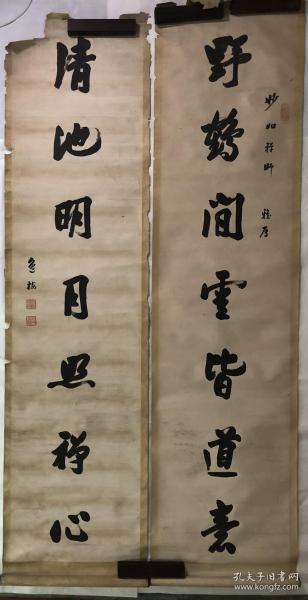 野鹤闲云皆道素
妙如禅师 雅属
清池明月照禅心
孔夫子旧书网
www.kongfz.com